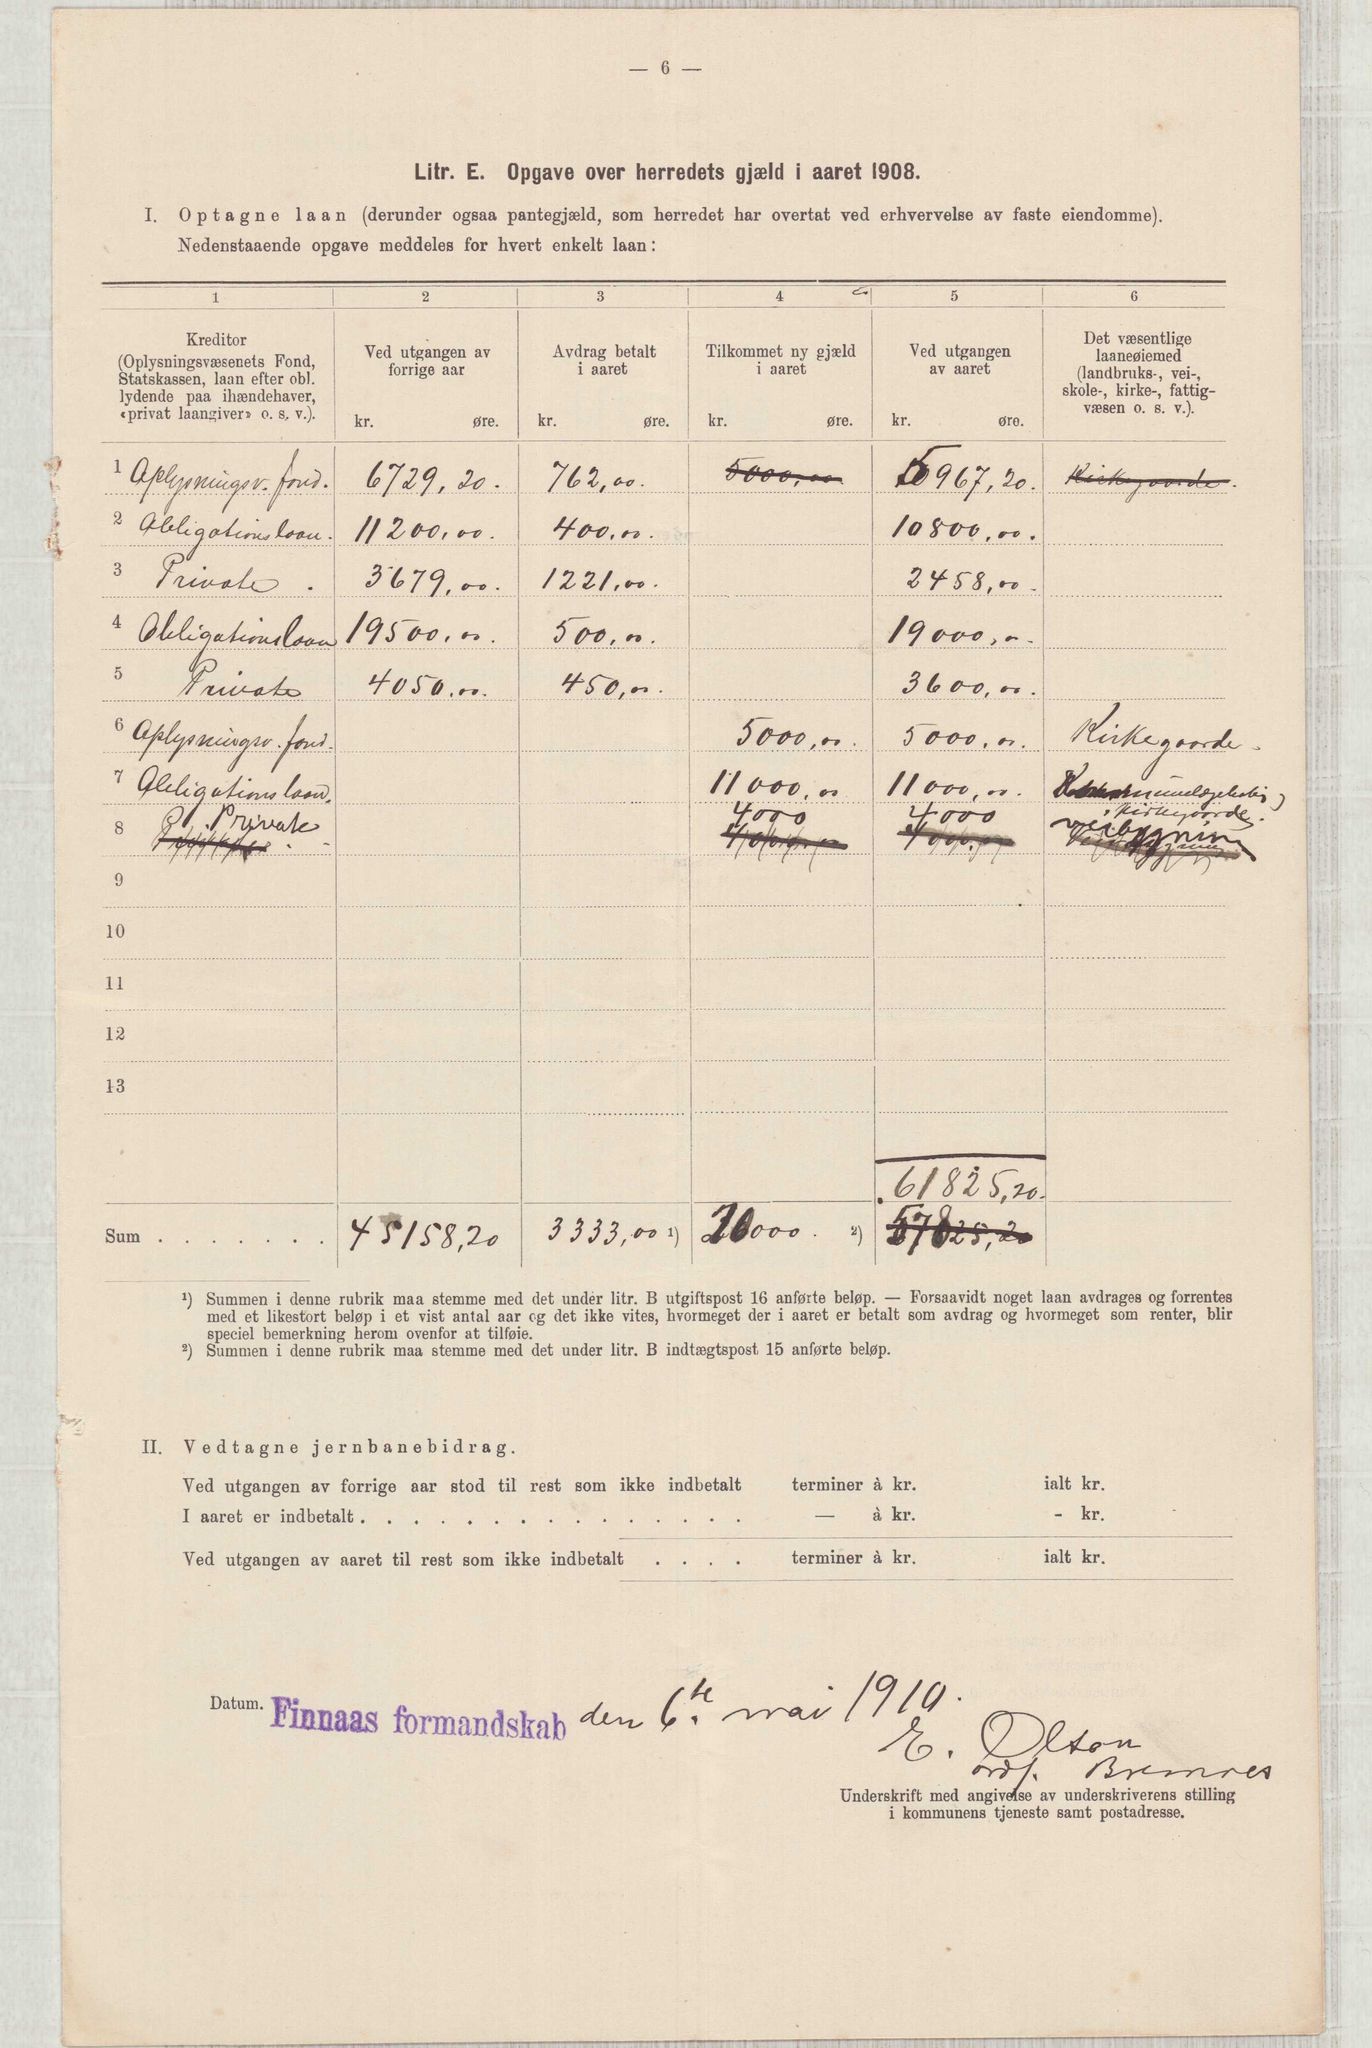 — 6 —
Litr. E. Opgave over herredets gjæld i aaret 1908.
I. Optagne laan (derunder ogsaa pantegjæld, som herredet har overtat ved erhvervelse av faste eiendomme).
Nedenstaaende opgave meddeles for hvert enkelt laan:
1 2 3 4 5 6
Kreditor
(Oplysningsvæsenets Fond,
Statskassen, laan efter obl.
lydende paa ihændehaver,
«privat laangiver» o. s. v.).
Ved utgangen av
forrige aar
kr. øre.
Avdrag betalt
i aaret
kr. øre.
Tilkommet ny gjæld
i aaret
kr. øre.
Ved utgangen
av aaret
kr. øre.
Det væsentlige
laaneøiemed
(landbruks-, vei-,
skole-, kirke-, fattig-
væsen o. s. v.).
1 Oplysningsv. fond. 6729,20. 762,00. 5000,00 5967,20. Kirkegaarde.
2 Obligationslaan. 11200,00. 400,00. 10800,00.
3 Private. 3679,00. 1221,00. 2458,00.
4 Obligationslaan 19500,00. 500,00. 19000,00.
5 Private 4050,00. 450,00. 3600,00.
6 Oplysningsv. fond. 5000,00. 5000,00. Kirkegaarde.
7 Obligationslaan. 11000,00 11000,00.
kirkegaarde.
8 Private 4000 4000 veibygning
4000,00 4000,00
9
10
11
12
13
61825,20.
Sum . . . . . . . 45158,20 3333,00 ¹) 20000. ²) 57825,20
¹) Summen i denne rubrik maa stemme med det under litr. B utgiftspost 16 anførte beløp. — Forsaavidt noget laan avdrages og forrentes
med et likestort beløp i et vist antal aar og det ikke vites, hvormeget der i aaret er betalt som avdrag og hvormeget som renter, blir
speciel bemerkning herom ovenfor at tilføie.
²) Summen i denne rubrik maa stemme med det under litr. B indtægtspost 15 anførte beløp.
II. Vedtagne jernbanebidrag.
Ved utgangen av forrige aar stod til rest som ikke indbetalt terminer à kr. ialt kr.
I aaret er indbetalt . . . . . . . . . . . . . . . — à kr. - kr.
Ved utgangen av aaret til rest som ikke indbetalt . . . . terminer à kr. ialt kr.
Datum. Finnaas formandskab den 6te mai 1910.
E. Olson
ordf. Bremnes
Underskrift med angivelse av underskriverens stilling
i kommunens tjeneste samt postadresse.